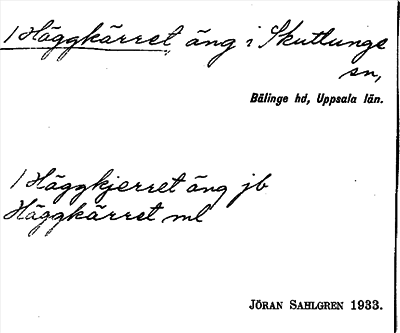 / Häggkärret, äng i Skuttunge
sn,
Bälinge hd, Uppsala län.
/ Häggkjerret äng jb
Häggkärret ml
JÖRAN SAHLGREN 1933.